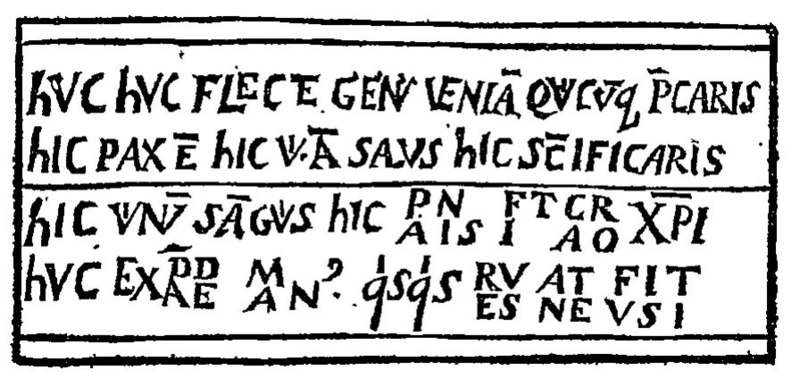 hVC hVC FLECTE GENV VENIĀ QVICV̄q P̄CARIS
hIC PAX Ē hIC V·Ā SALVS hIC SC̄IFICARIS
hIC VINV̄ SĀGVIS hIC PANIS FIT CARO XP̄I
hVC EXP̄ADE MANꝰ qͥsqͥs REVS ANTE FVISTI